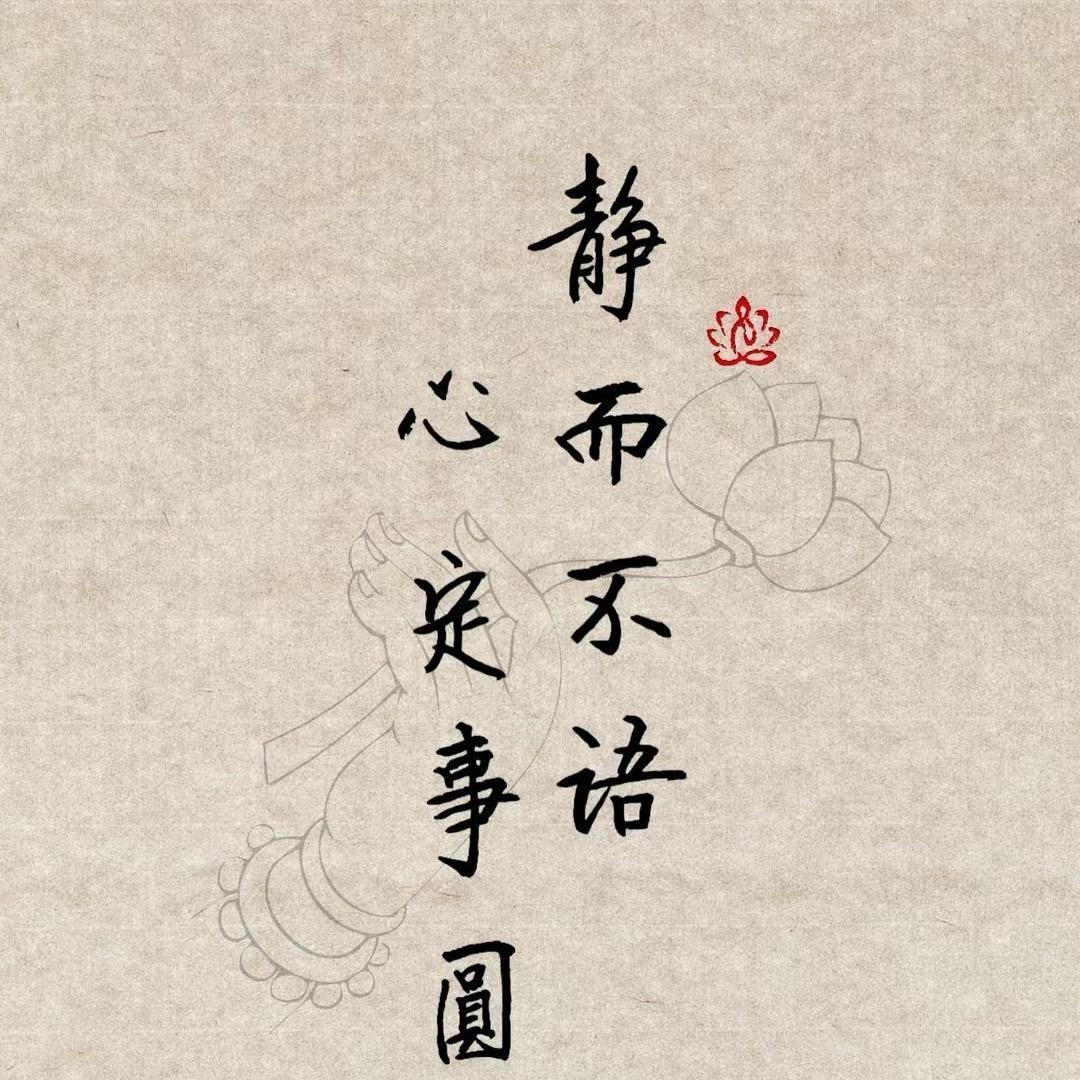 静而不语
心定事圓